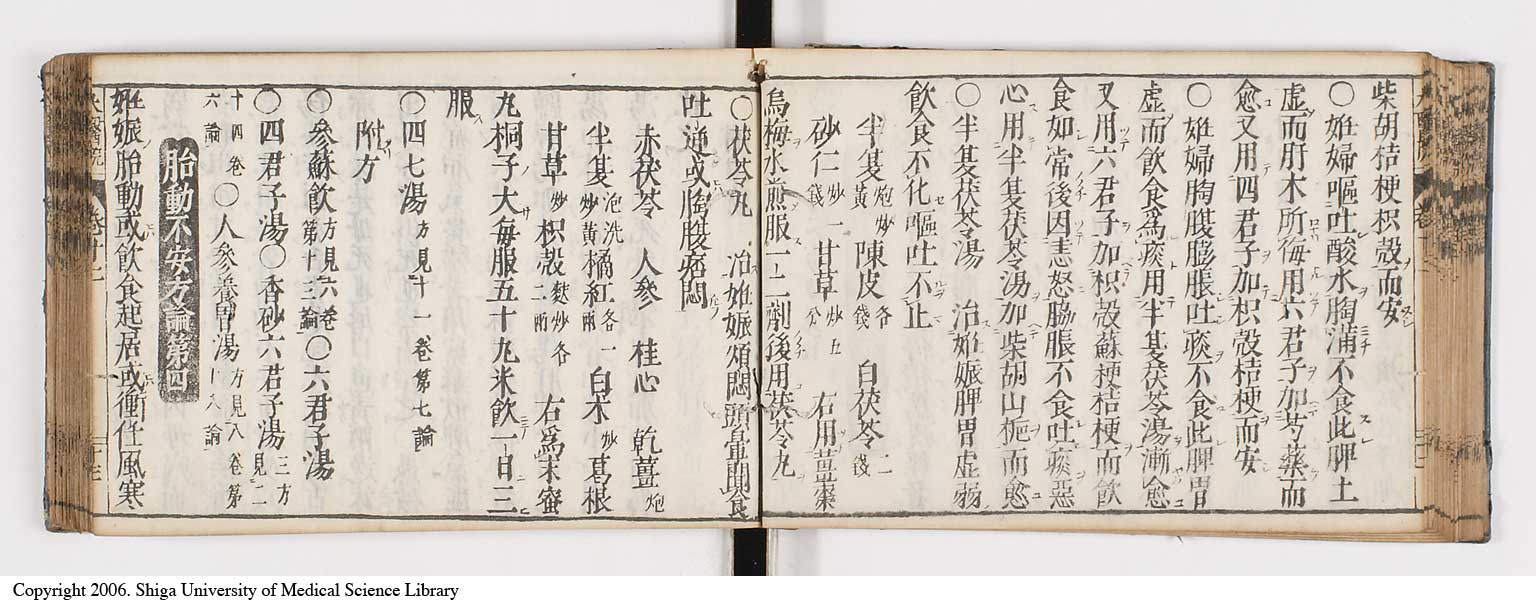 柴胡桔梗枳殻而安
○姙婦嘔吐酸水胸滿不食此脾土
虚而肝木所侮用六君子加芎藭而
愈又用四君子加枳殻桔梗而安
○姙婦胸膈膨脹吐痰不食此脾胃
虚而飲食爲痰用半夏茯苓湯漸愈
又用六君子加枳殻蘇梗桔梗而飲
食如常後因恚怒脇脹不食吐痰惡
心用半夏茯苓湯加柴胡山梔而愈
○半夏茯苓湯 治姙娠脾胃虚弱
飲食不化嘔吐不止
半夏炮炒黃 陳皮各錢 白茯苓二錢
砂仁炒一錢 甘草炒五分 右用薑棗
烏梅水煎服一二劑後用茯苓丸
○茯苓丸 治姙娠煩悶頭暈聞食
吐逆或胸腹痞悶
赤茯苓 人參 桂心 乾薑炮
半夏泡洗炒黃 橘紅各一兩 白朮炒 葛根
甘草炒 枳殻麩炒各二兩 右爲末蜜
丸桐子大毎服五十丸米飲一日三
服
○四七湯方見十一卷第七論
附方
○參蘇飲方見六卷第十三論○六君子湯
○四君子湯○香砂六君子湯三方見二
十四卷六論○人參養胃湯方見八卷第十八論
胎動不安方論第四
姙娠胎動或飲食起居或衝任風寒
Copyright 2006. Shiga University of Medical Science Library